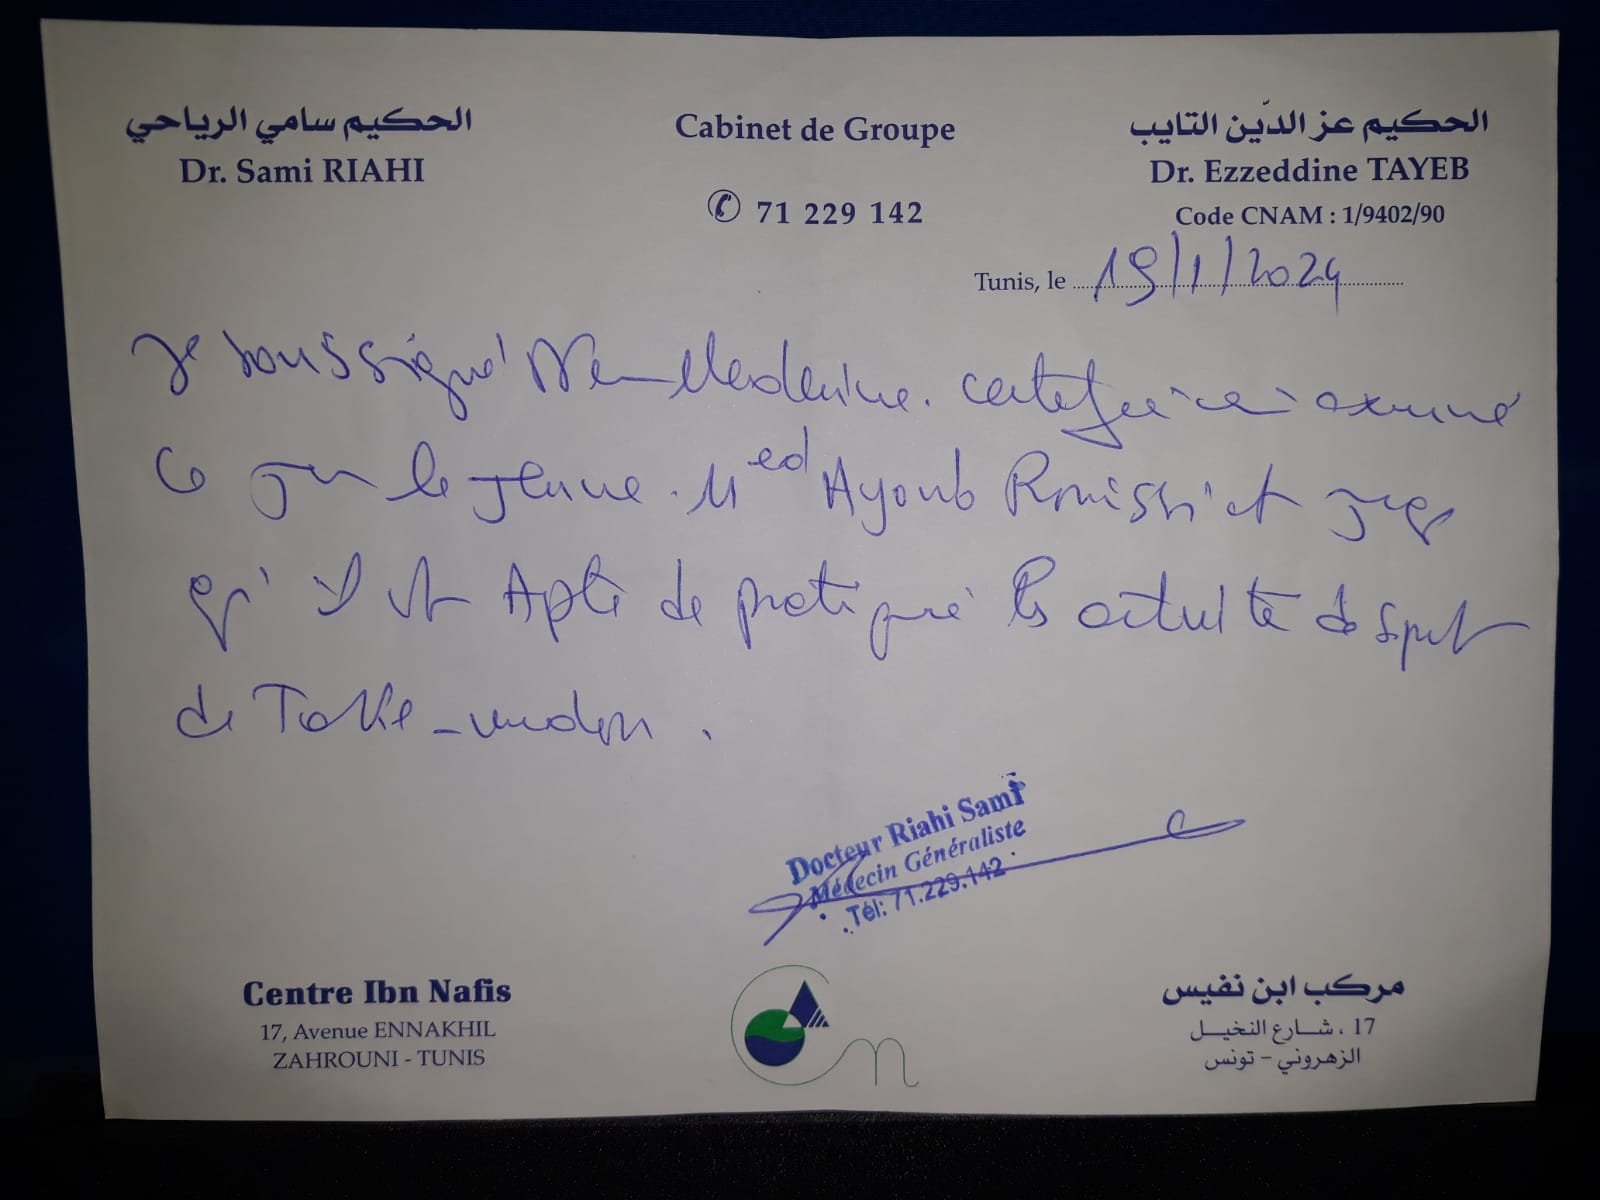 الحكيم سامي الرياحي
Dr. Sami RIAHI
Cabinet de Groupe
✆ 71 229 142
الحكيم عز الدّين التايب
Dr. Ezzeddine TAYEB
Code CNAM : 1/9402/90
Tunis, le 19/1/2024
Je soussigné Dr en Medecine certifie avoir examiné
ce jour le jeune Med Ayoub Rouissi et juge
qu'il est Apte de pratiquer les activité de sport
de
Docteur Riahi Sami
Médecin Généraliste
Tél: 71.229.142
Centre Ibn Nafis
17, Avenue ENNAKHIL
ZAHROUNI - TUNIS
مركب ابن نفيس
17 ، شارع النخيل
الزهروني - تونس